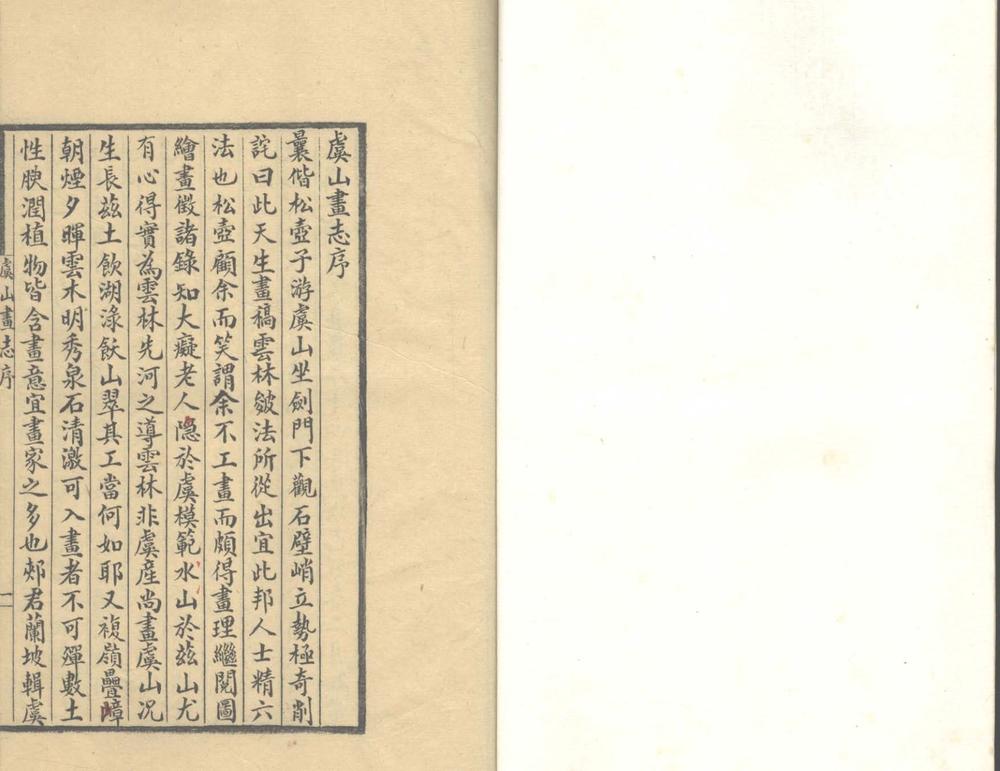 虞山畫志序
曩偕松壺子游虞山坐劍門下觀石壁峭立勢極奇削
詫曰此天生畫稿雲林皴法所從出宜此邦人士精六
法也松壺顧余而笑謂余不工畫而頗得畫理繼閱圖
繪畫徵諸錄知大癡老人隱於虞模範水山於茲山尤
有心得實為雲林先河之導雲林非虞產尚畫虞山況
生長茲土飲湖淥飫山翠其工當何如耶又複嶺疊嶂
朝煙夕暉雲木明秀泉石清激可入畫者不可殫數土
性腴潤植物皆含畫意宜畫家之多也郟君蘭坡輯虞
虞山畫志序
一